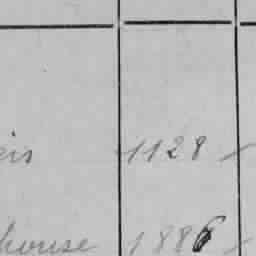 eis 1128
house 1886